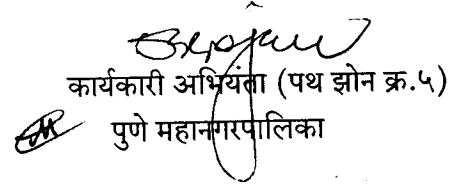 कार्यकारी अभियंता (पथ झोन क्र.५)
पुणे महानगरपालिका